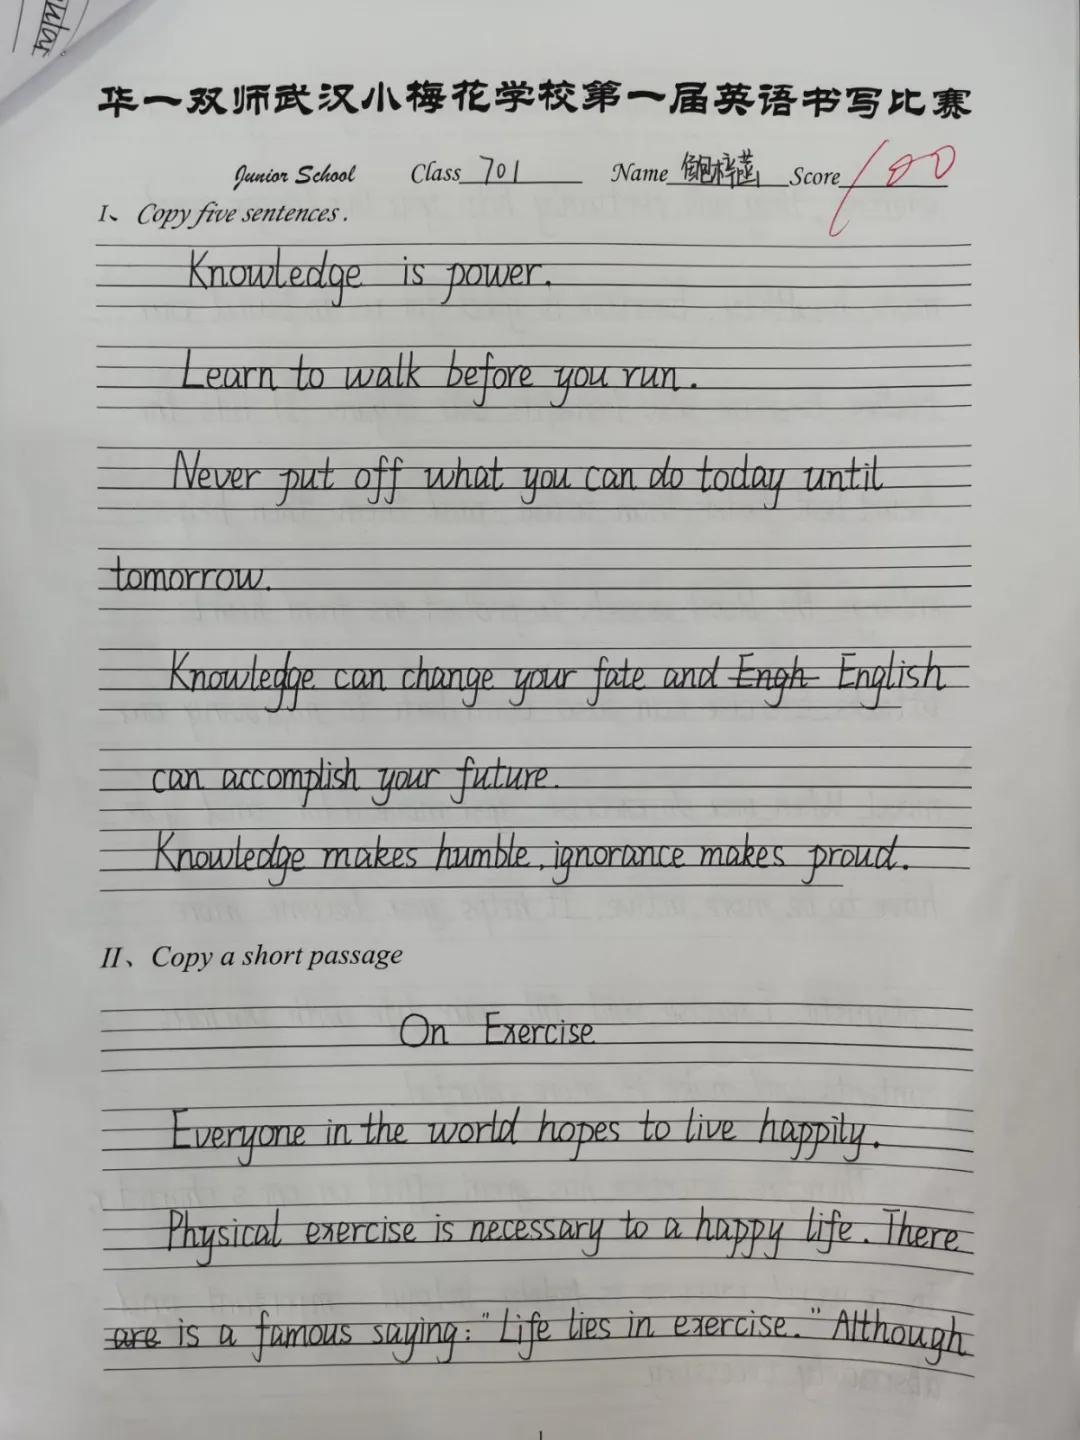 华一双师武汉小梅花学校第一届英语书写比赛
Junior School Class 701 Name 鲍梓菡 Score 100
I、Copy five sentences.
Knowledge is power.
Learn to walk before you run.
Never put off what you can do today until
tomorrow.
Knowlegge can change your fate and Engh English
can accomplish your future.
Knowledge makes humble, ignorance makes proud.
II、Copy a short passage
On Exercise
Everyone in the world hopes to live happily.
Physical exercise is necessary to a happy life. There
are is a famous saying: "Life lies in exercise." Although
1